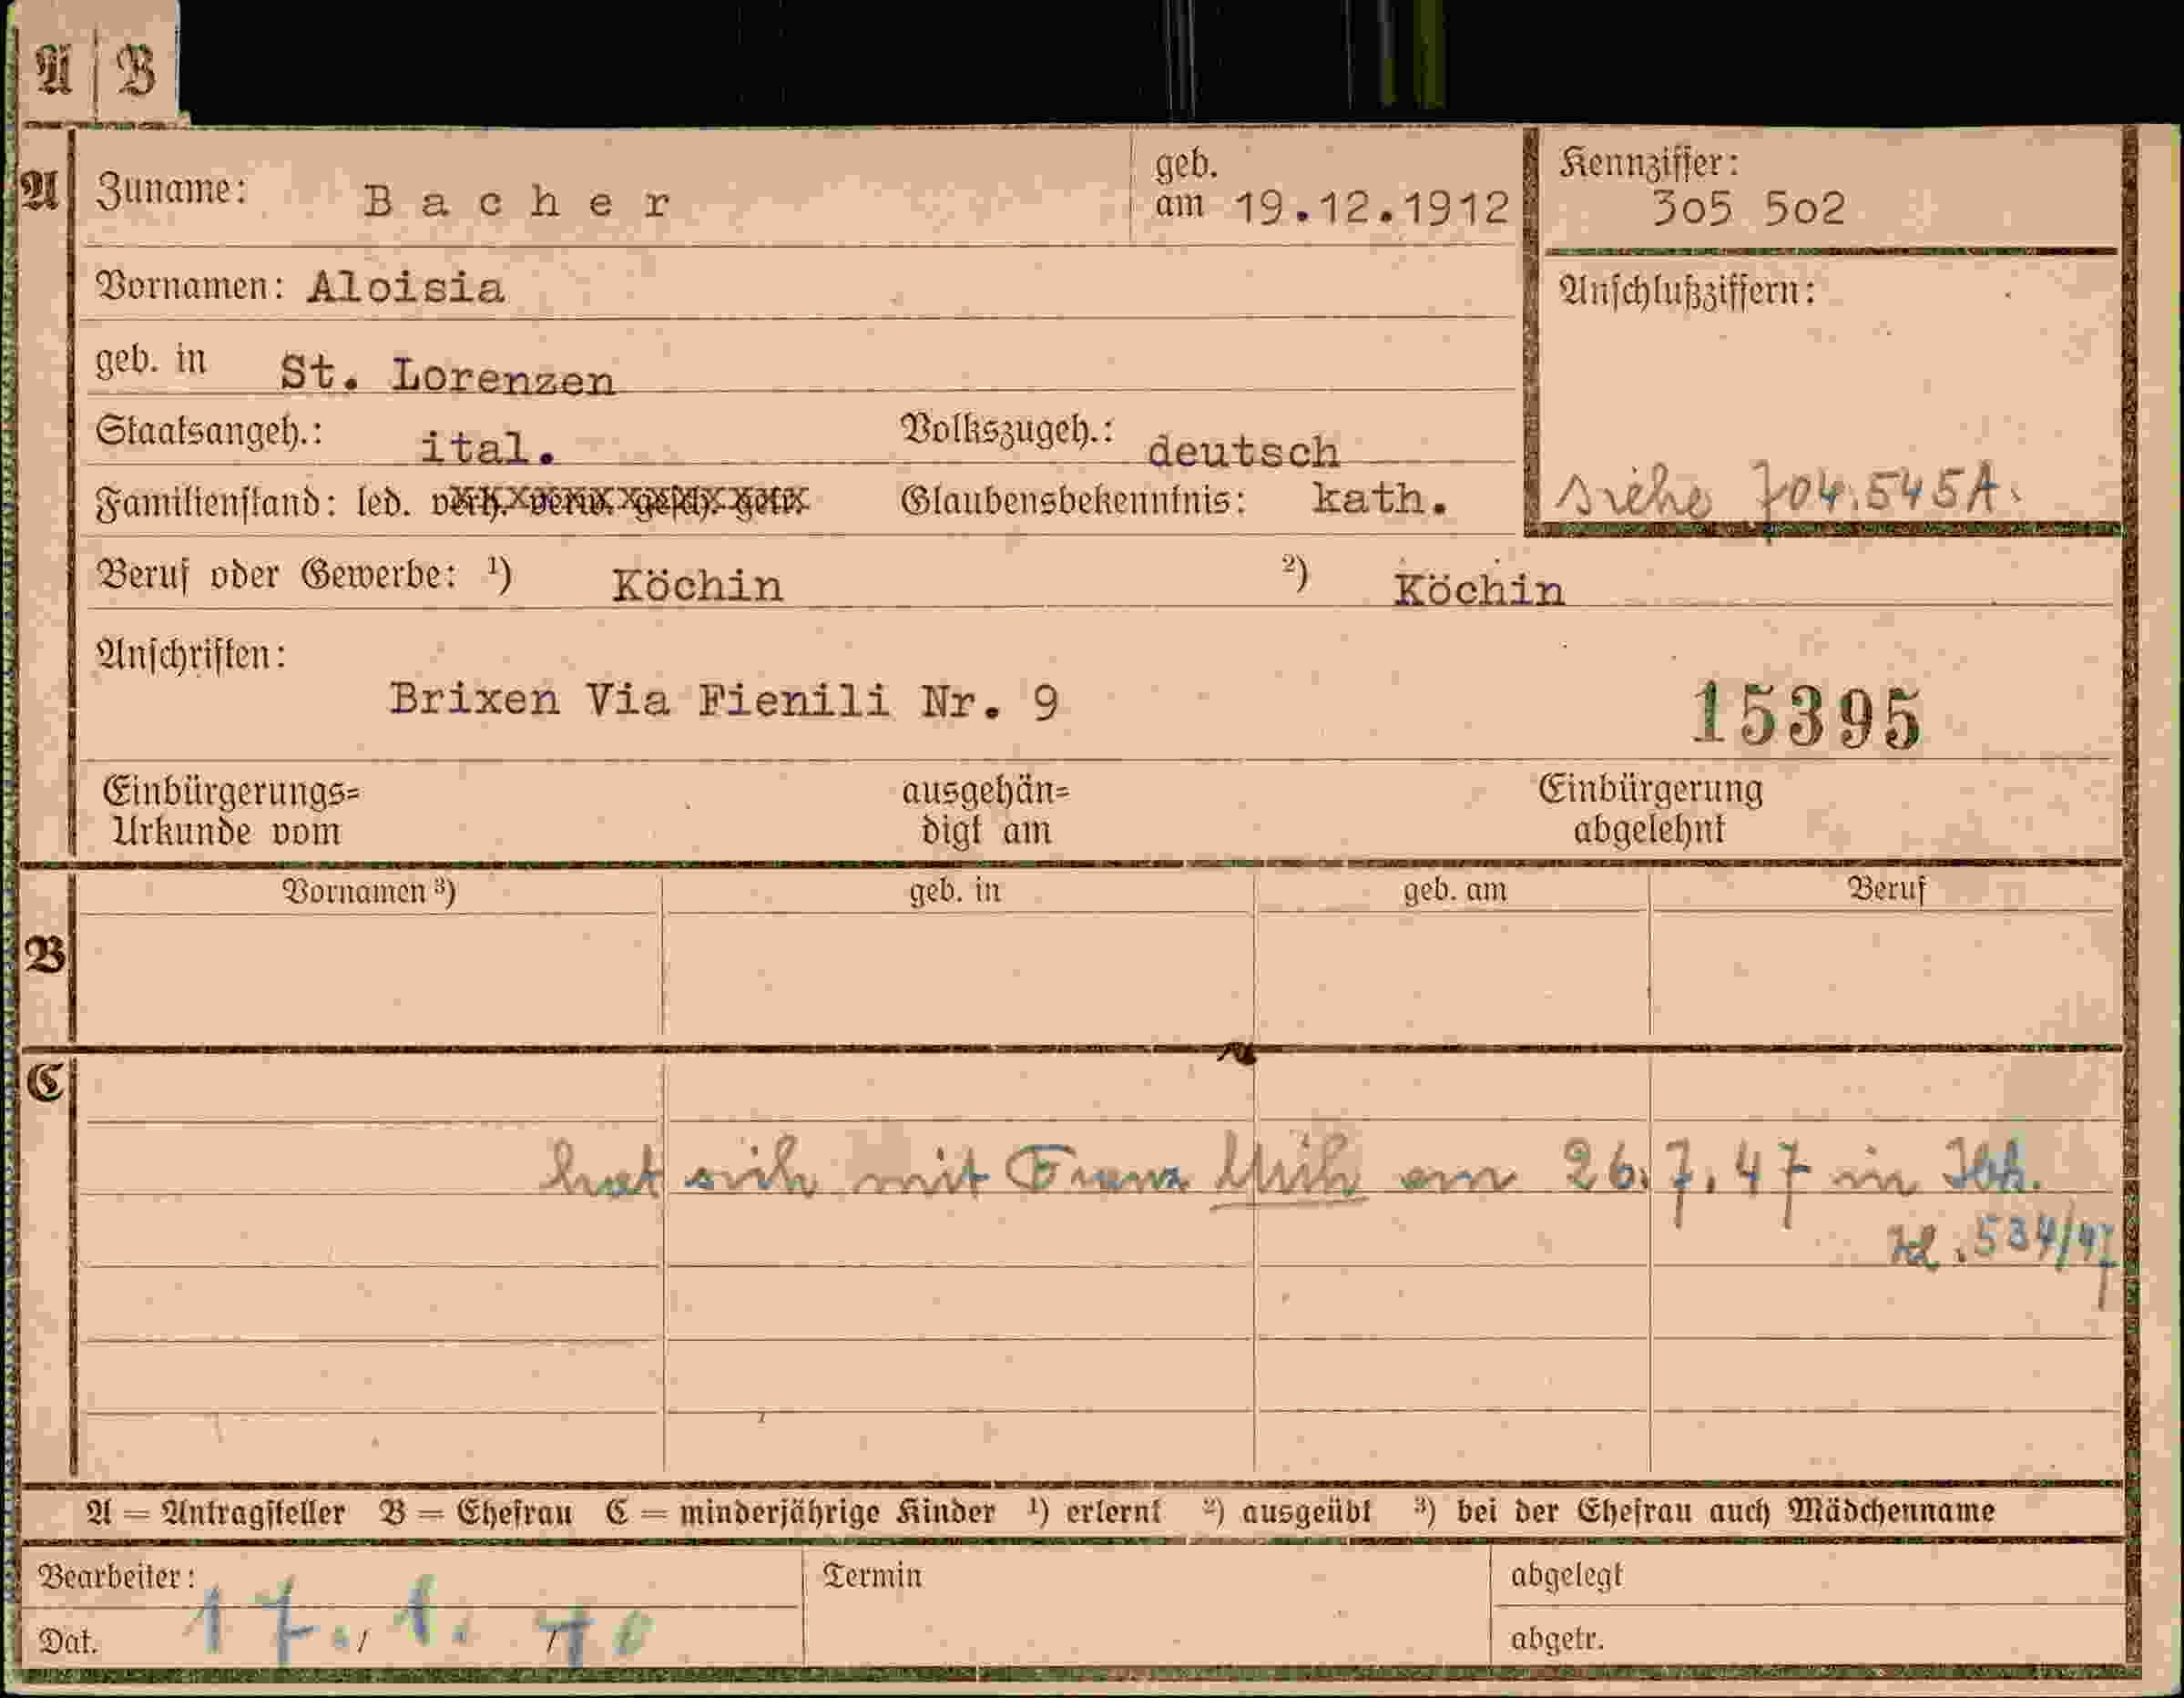 A | B
A Zuname: Bacher geb. am 19.12.1912 Kennziffer: 305 502
Vornamen: Aloisia Anschlußziffern:
geb. in St. Lorenzen
Staatsangeh.: ital. Volkszugeh.: deutsch
Familienstand: led. verh. verw. gesch. getr. Glaubensbekenntnis: kath. siehe 704.545A.
Beruf oder Gewerbe: ¹) Köchin ²) Köchin
Anschriften:
Brixen Via Fienili Nr. 9 15395
Einbürgerungs= ausgehän= Einbürgerung
Urkunde vom digt am abgelehnt
Vornamen ³) geb. in geb. am Beruf
B
C
hat sich mit Franz am 26.7.47 in
534/47
A = Antragsteller B = Ehefrau C = minderjährige Kinder ¹) erlernt ²) ausgeübt ³) bei der Ehefrau auch Mädchenname
Bearbeiter: Termin abgelegt
Dat. 17. 1. 40 abgetr.